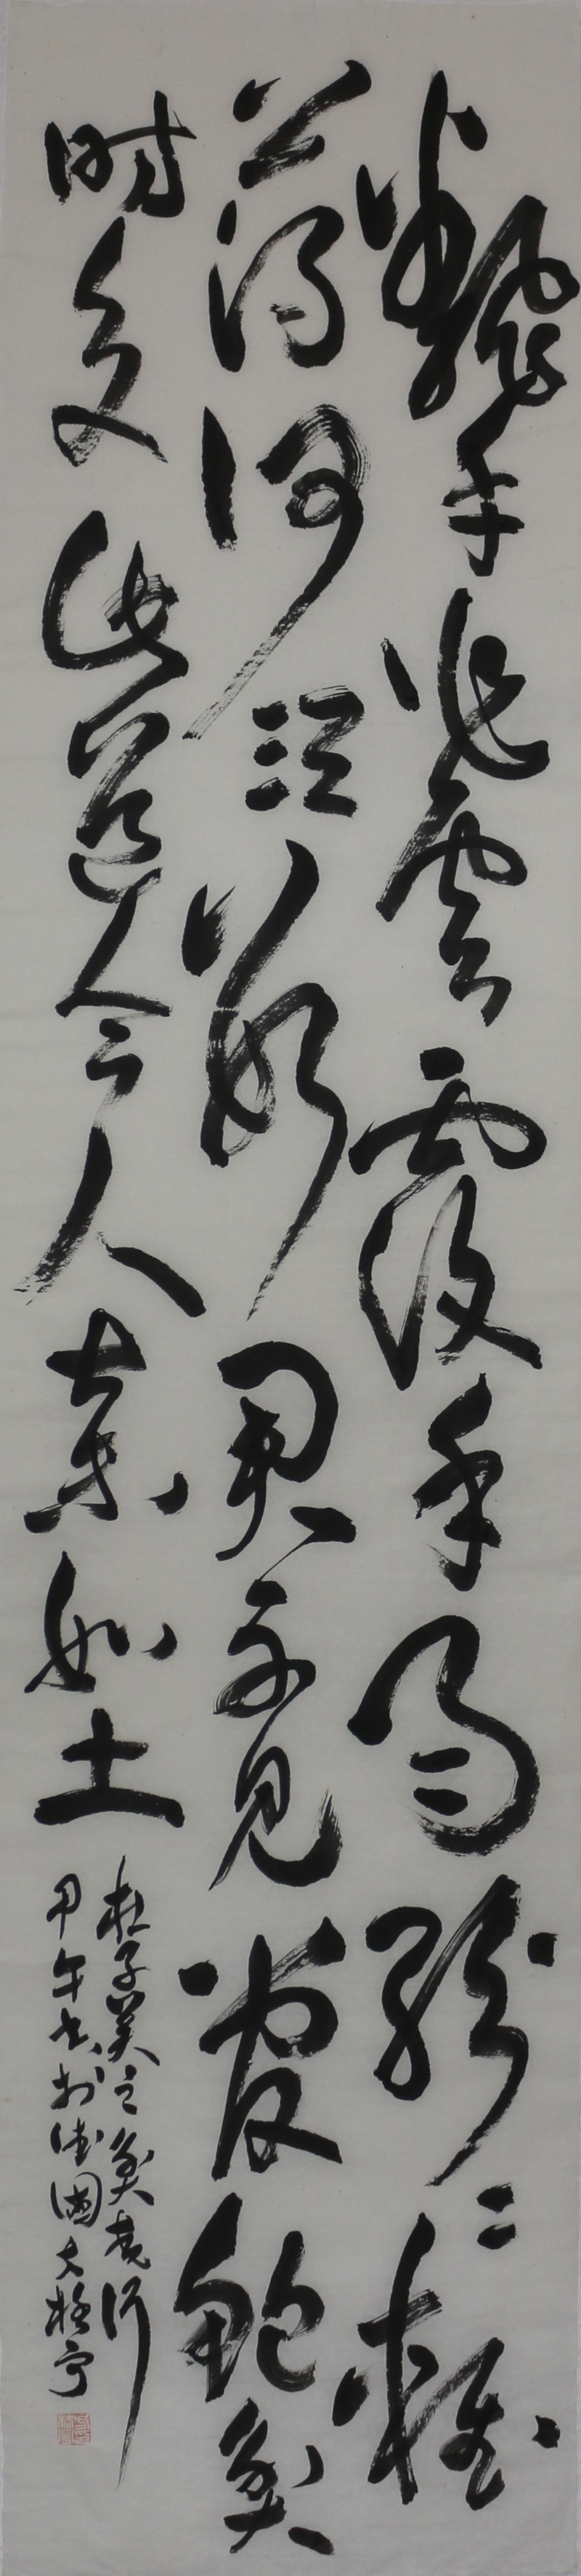 翻手作雲覆手雨紛〻輕
薄何須數君不見管鮑貧
時交此道今人棄如土
杜子美之貧交行
甲午書於德國